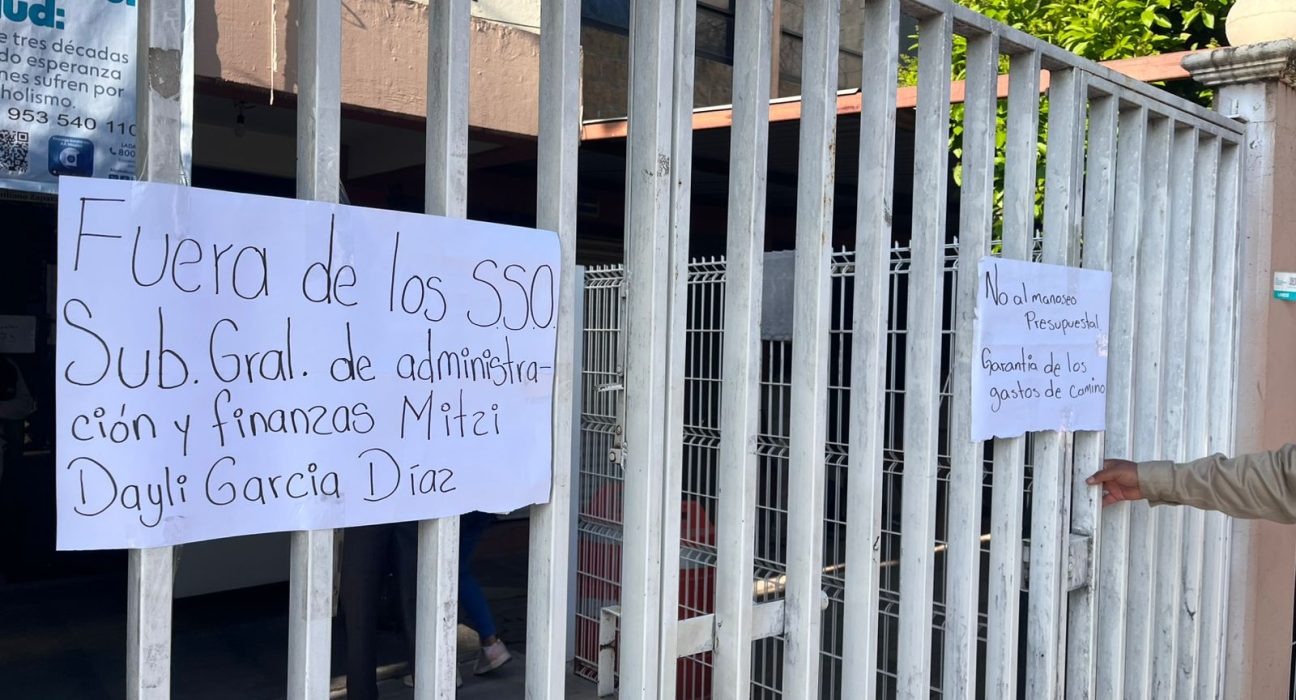 lud:
e tres décadas
do esperanza
nes sufren por
holismo.
953 540 110
LADA
800
Fuera de los S.S.O.
Sub. Gral. de administra-
ción y finanzas Mitzi
Dayli Garcia Díaz
No al manoseo
Presupuestal
Garantia de los
gastos de camino